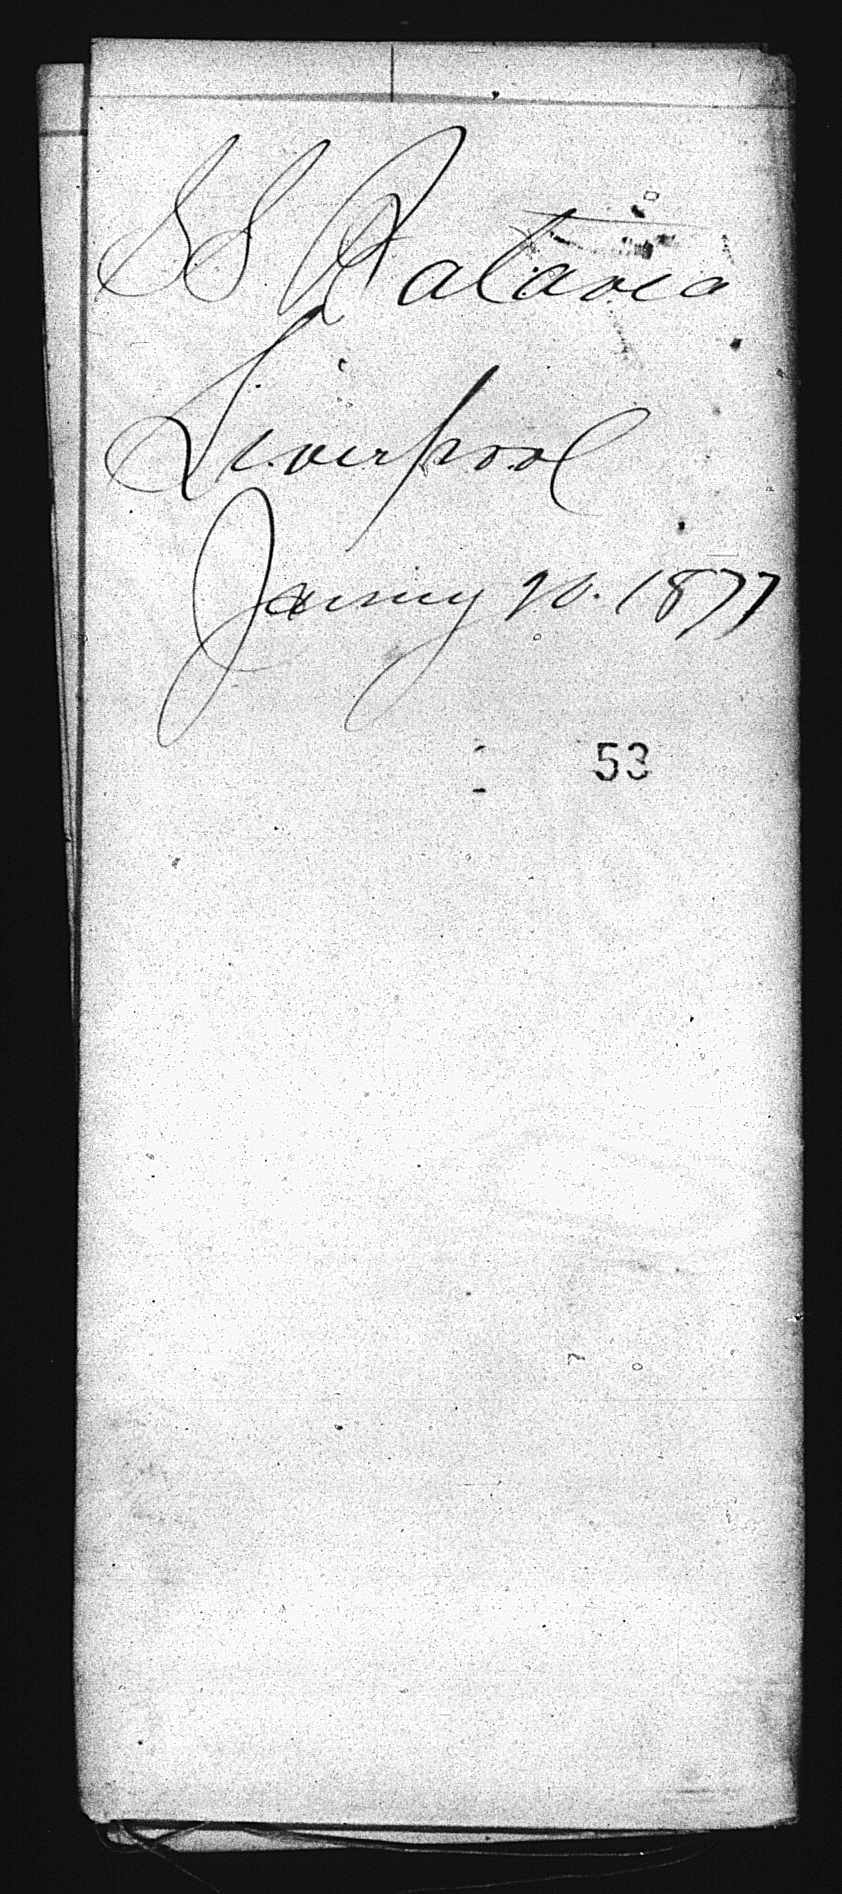 SS Batavia
Liverpool
January 20. 1877
53